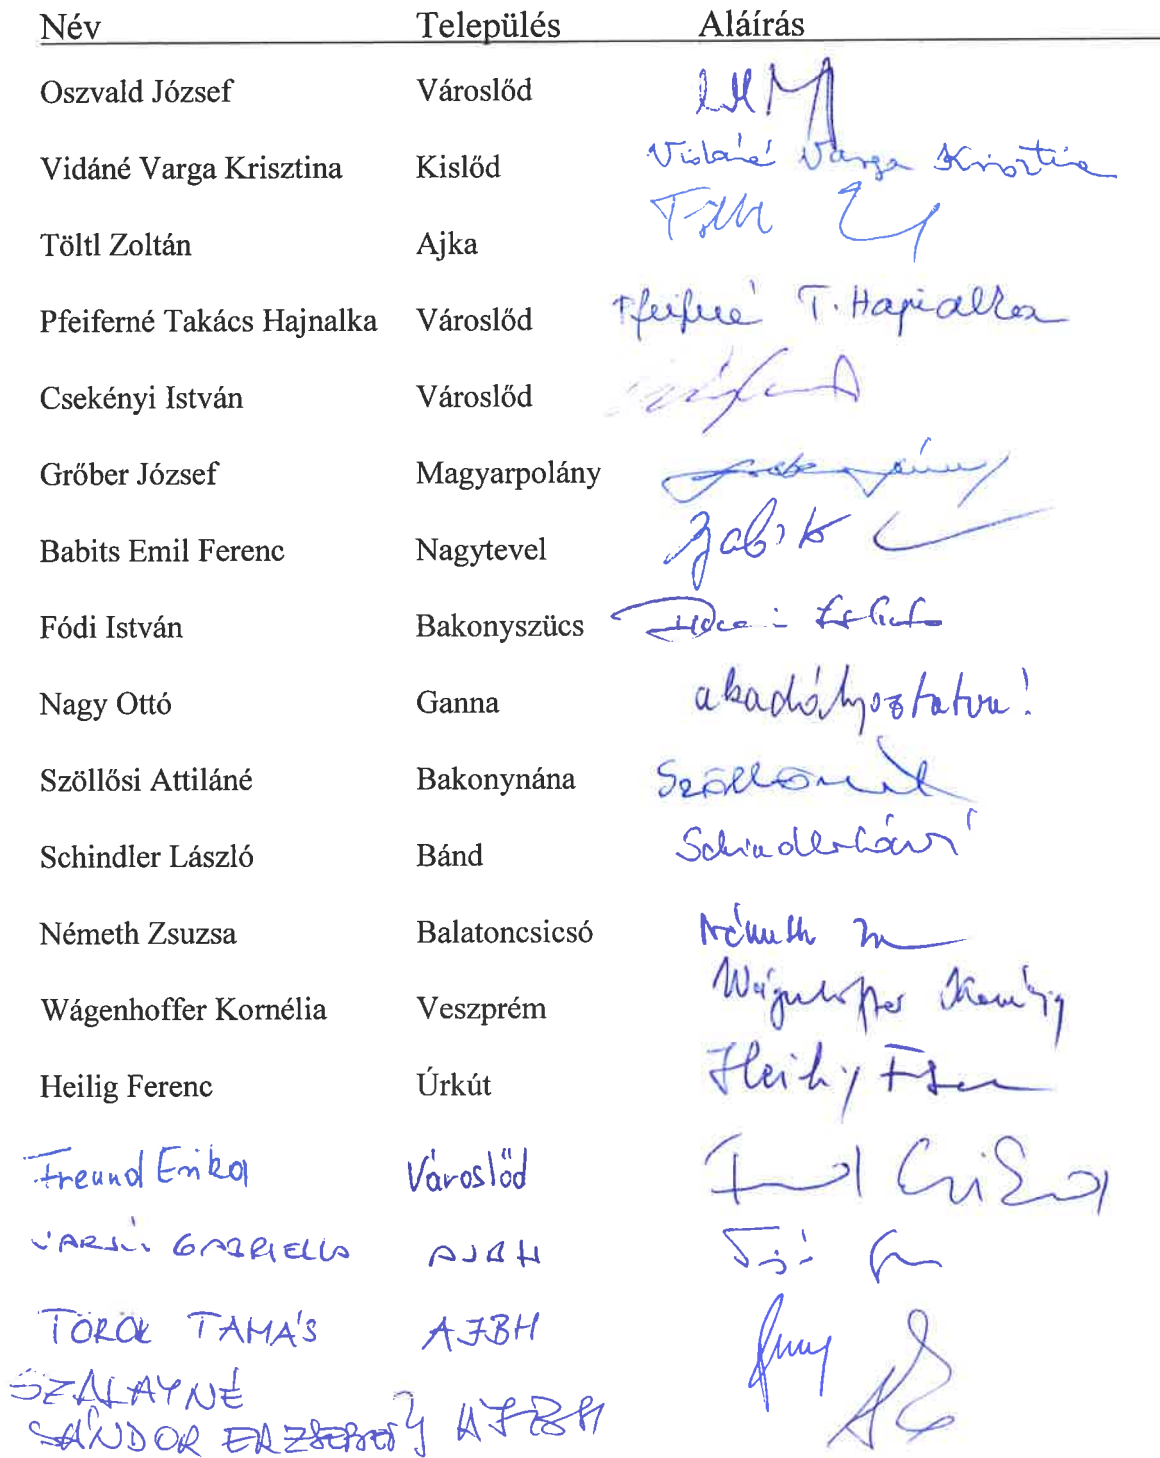 Név Település Aláírás
Oszvald József Városlőd
Vidáné Varga Krisztina Kislőd Vidáné Varga Krisztina
Töltl Zoltán Ajka Töltl
Pfeiferné Takács Hajnalka Városlőd Pfeiferné T. Hajnalka
Csekényi István Városlőd
Grőber József Magyarpolány
Babits Emil Ferenc Nagytevel Babits
Fódi István Bakonyszücs
Nagy Ottó Ganna akadályoztatva!
Szöllősi Attiláné Bakonynána Szöllősi
Schindler László Bánd Schindler László
Németh Zsuzsa Balatoncsicsó Németh
Wágenhoffer Kornélia Veszprém Wágenhoffer Kornélia
Heilig Ferenc Úrkút Heilig Ferenc
Freund Erika Városlőd Freund Erika
GABRIELLA AJBH
TÖRÖK TAMÁS AJBH
SZALAYNÉ
SÁNDOR ERZSÉBET AJBH